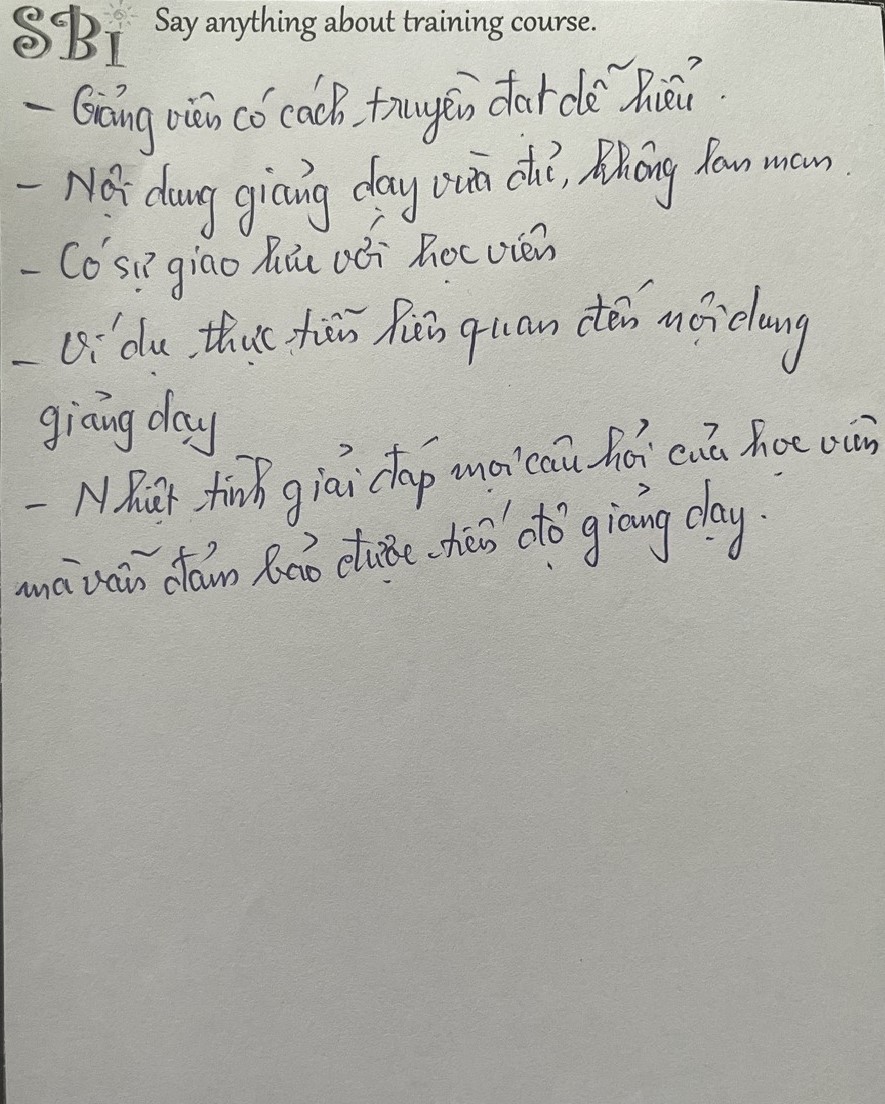 SBI Say anything about training course.
- Giảng viên có cách truyền đạt dễ hiểu.
- Nội dung giảng dạy vừa đủ, không lan man.
- Có sự giao lưu với học viên
- Ví dụ thực tiễn liên quan đến nội dung
giảng dạy
- Nhiệt tình giải đáp mọi câu hỏi của học viên
mà vẫn đảm bảo được tiến độ giảng dạy.